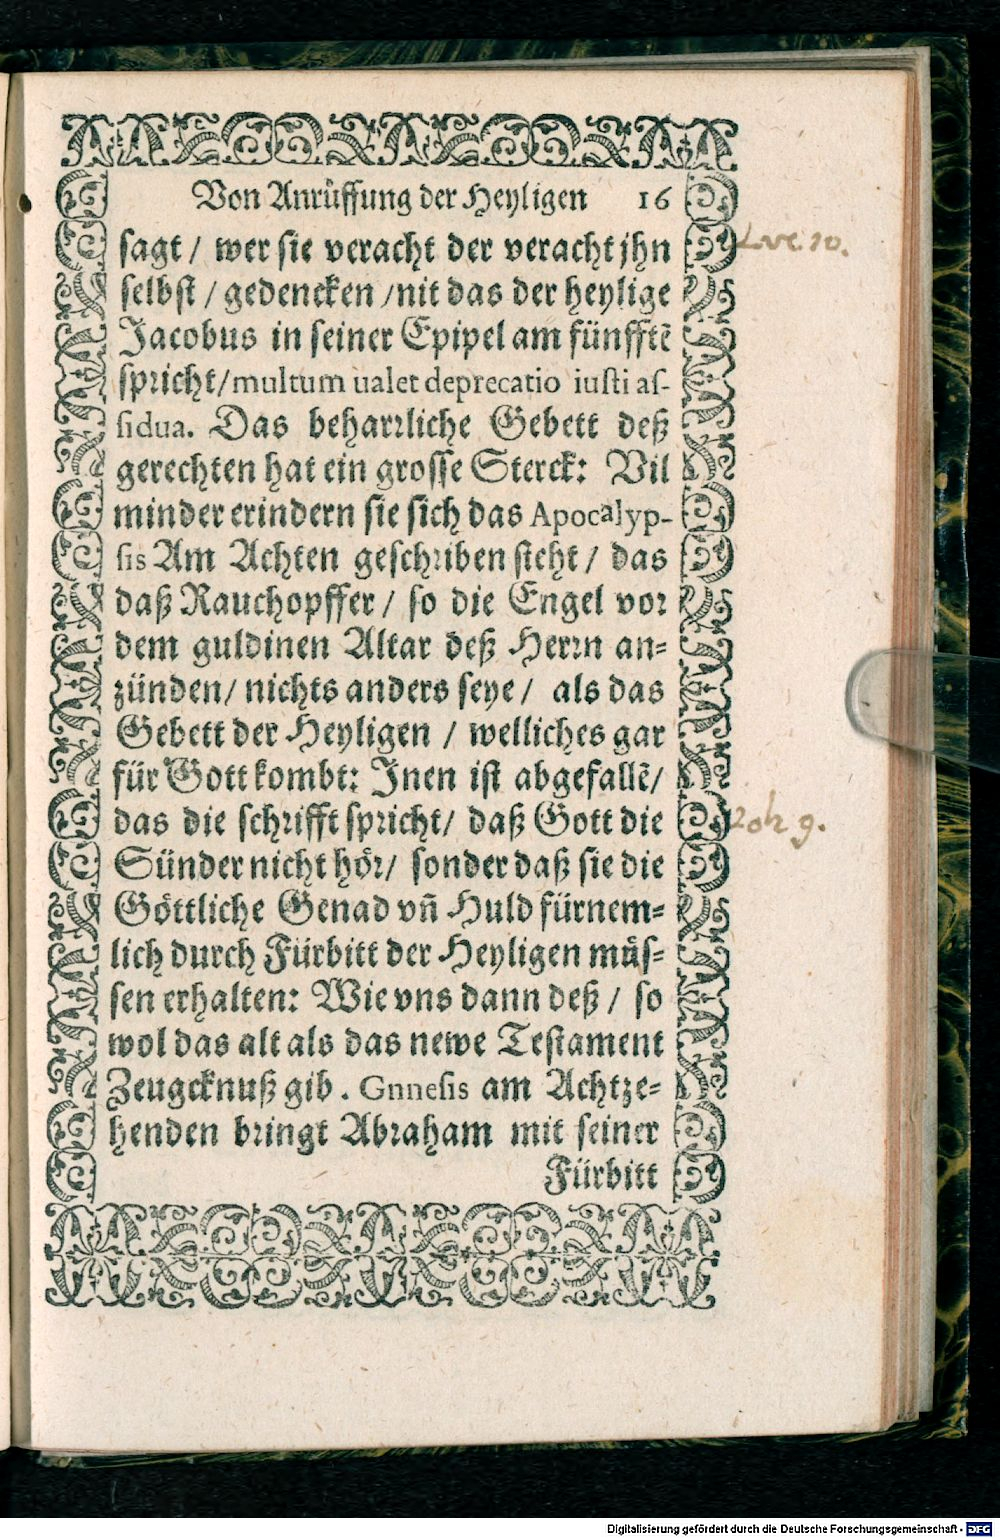 Von Anrůffung der Heyligen 16
sagt / wer sie veracht der veracht jhn
selbst / gedencken /nit das der heylige
Jacobus in seiner Epipel am fünfftẽ
spricht/multum ualet deprecatio iusti as-
sidua. Das beharrliche Gebett deß
gerechten hat ein grosse Sterck: Vil
minder erindern sie sich das Apocalyp-
sis Am Achten geschriben steht / das
daß Rauchopffer / so die Engel vor
dem guldinen Altar deß Herrn an-
zünden/ nichts anders seye / als das
Gebett der Heyligen / welliches gar
für Gott kombt: Jnen ist abgefallẽ/
das die schrifft spricht/ daß Gott die
Sünder nicht hör/ sonder daß sie die
Göttliche Genad vñ Huld fürnem-
lich durch Fürbitt der Heyligen můs-
sen erhalten: Wie vns dann deß / so
wol das alt als das newe Testament
Zeugcknuß gib . Gnnesis am Achtze-
henden bringt Abraham mit seiner
Fürbitt
Luc. 10.
Joh 9.
Digitalisierung gefördert durch die Deutsche Forschungsgemeinschaft - DFG